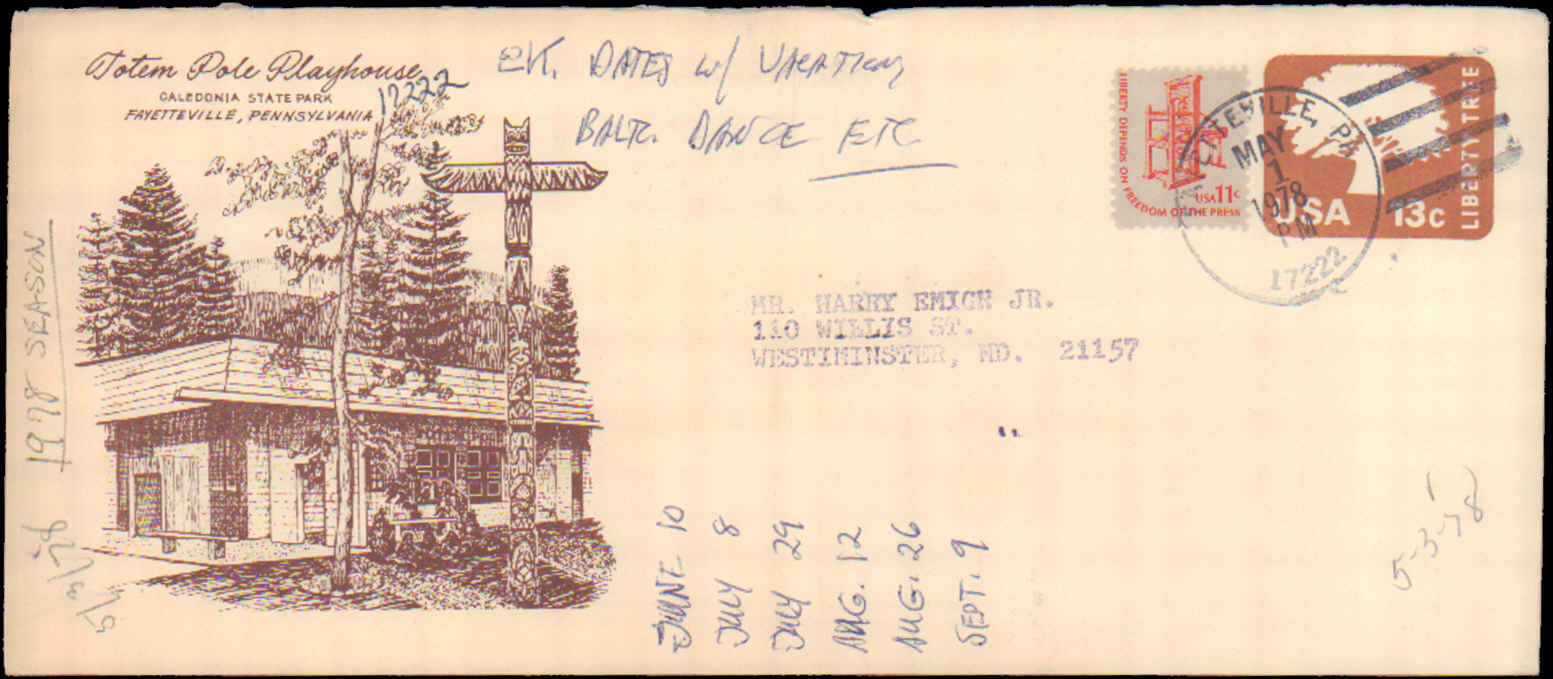 Totem Pole Playhouse
CALEDONIA STATE PARK
FAYETTEVILLE, PENNSYLVANIA
17222
CK. DATES W/ VACATION
BALTO. DANCE ETC
LIBERTY DEPENDS ON FREEDOM OF THE PRESS
USA 11c
FAYETTEVILLE, PA
MAY
1
1978
PM
17222
USA 13c
LIBERTY TREE
MR. HARRY EMIGH JR.
110 WILLIS ST.
WESTIMINSTER, MD. 21157
1978 SEASON
5/3/78
JUNE 10
JULY 8
JULY 29
AUG. 12
AUG. 26
SEPT. 9
5-3-78